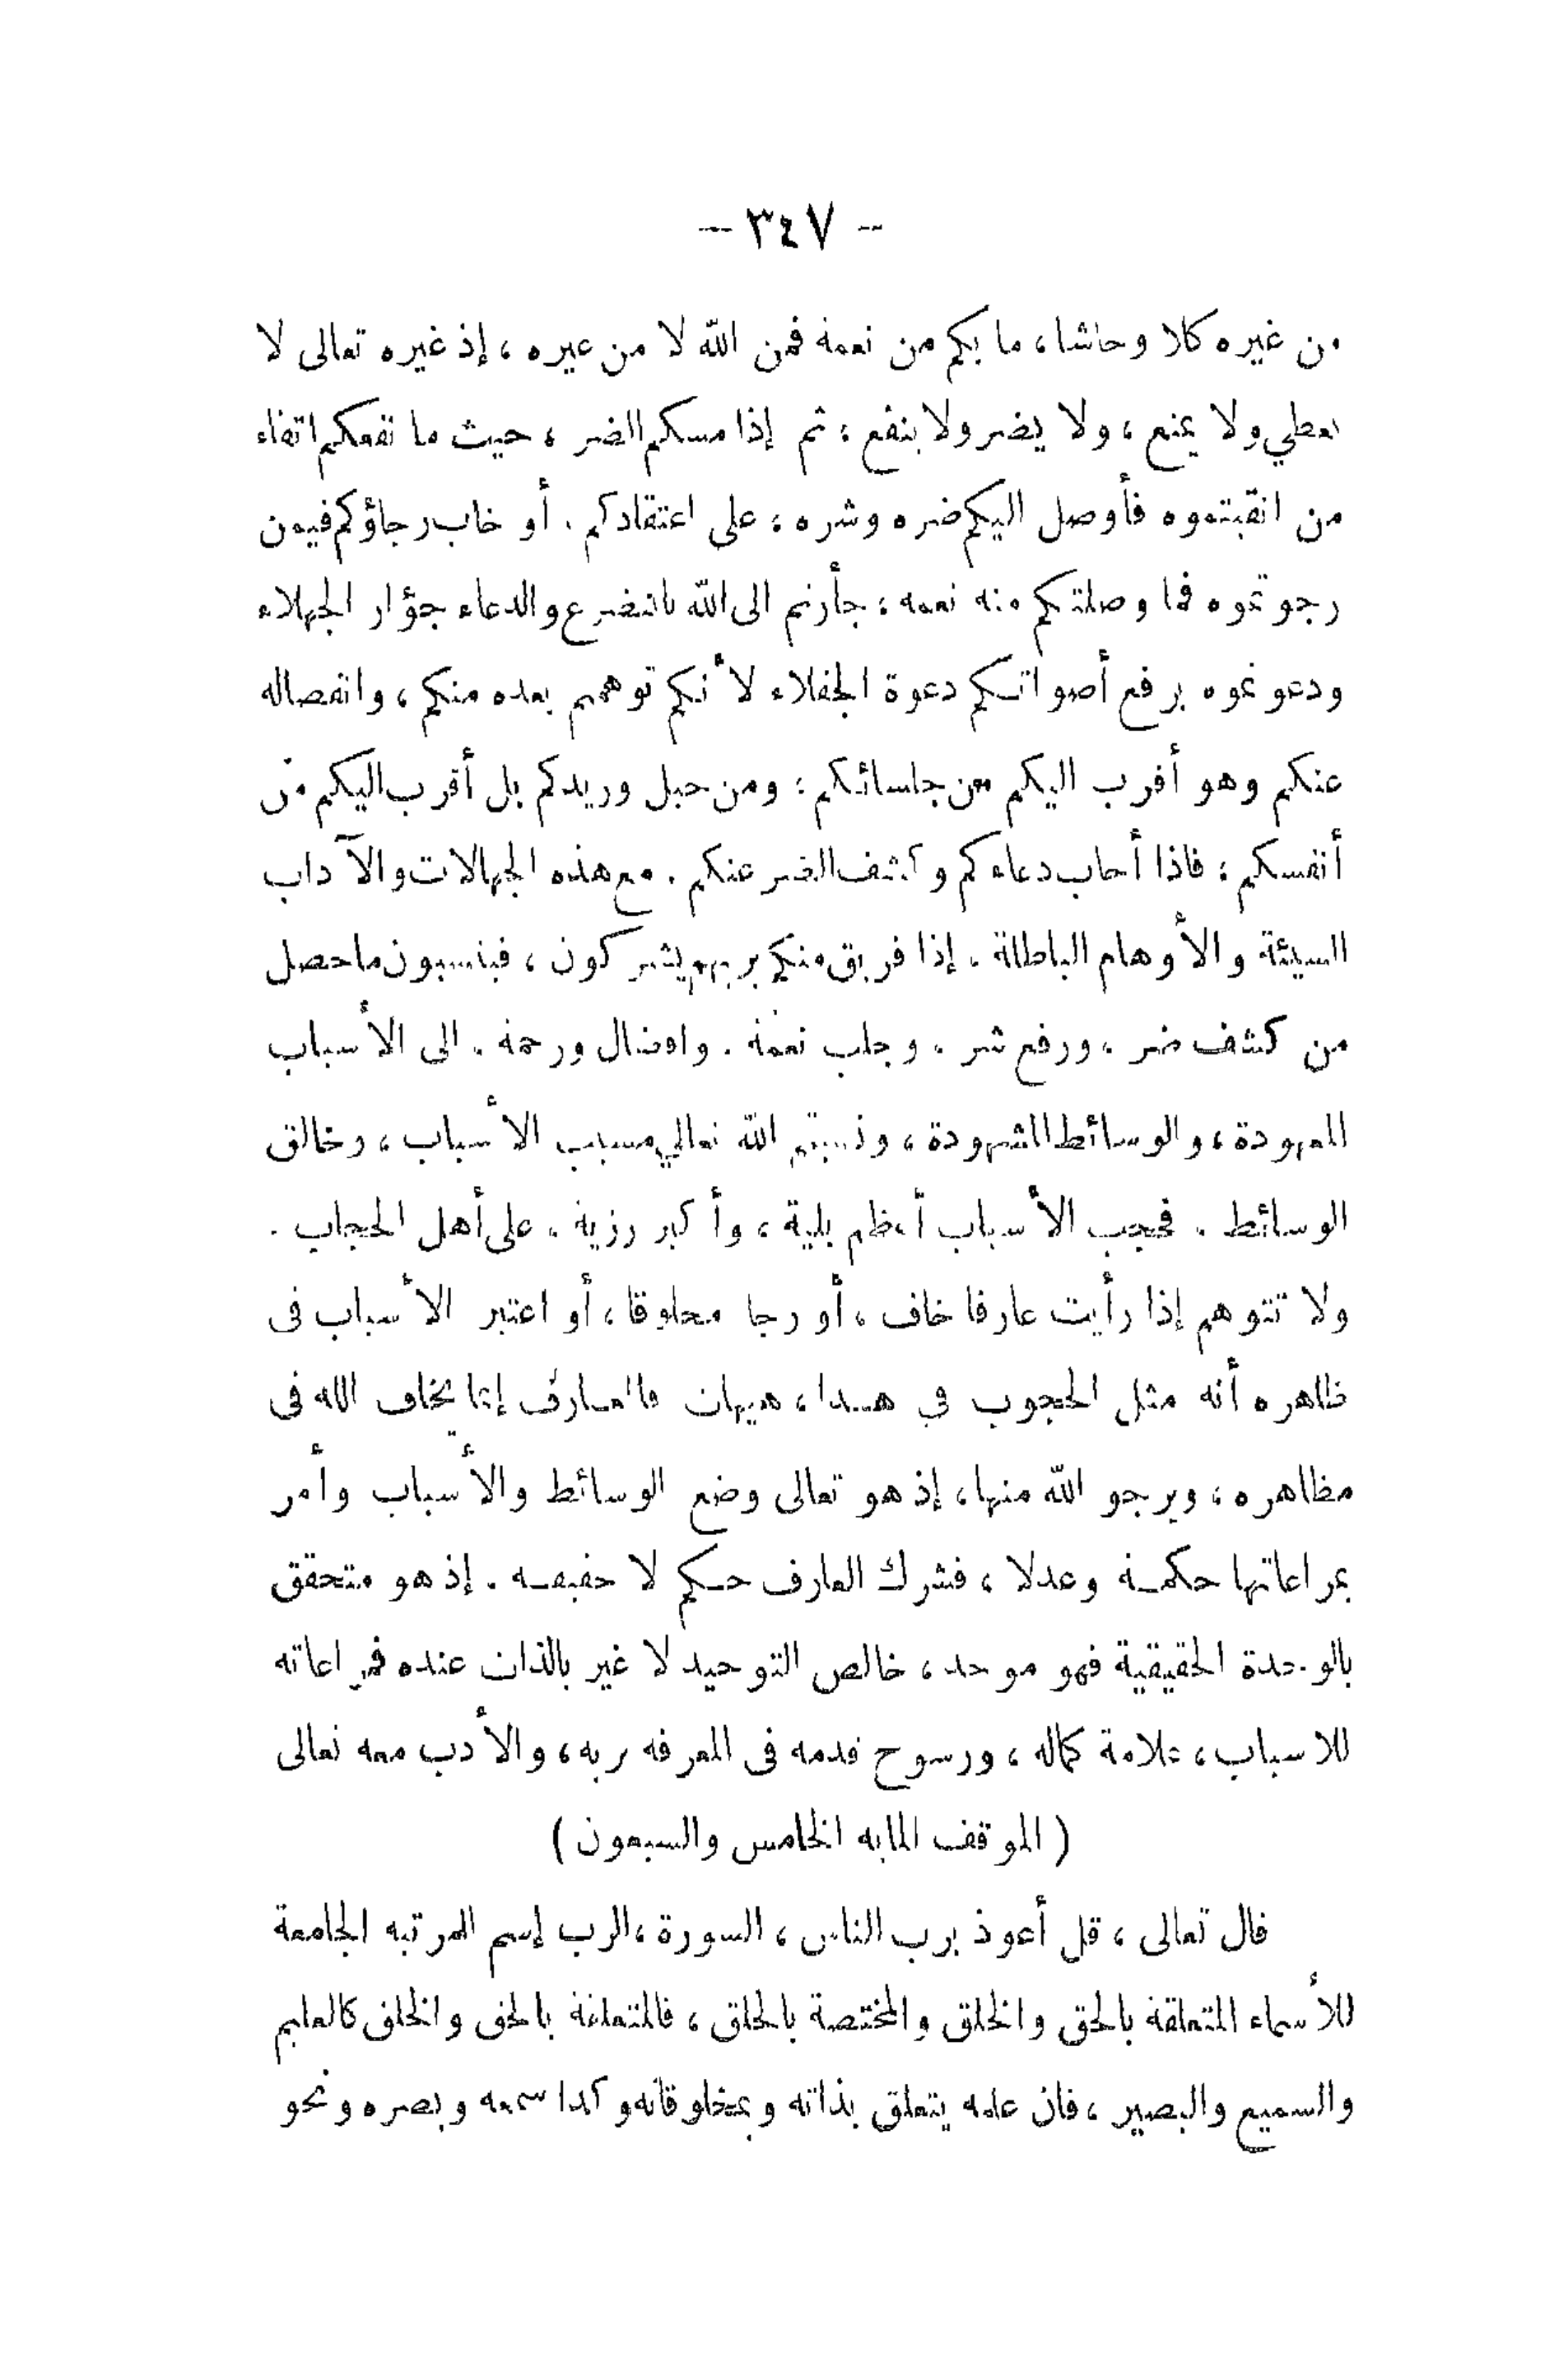 - ٣٤٧ -
من غيره كلا وحاشا، ما بكم من نعمة فمن الله لا من غيره، إذ غيره تعالى لا
يعطي ولا يمنع، ولا يضر ولا ينفع؛ ثم إذا مسكم الضر، حيث ما نفعكم اتقاء
من اتقيتموه فأوصل اليكم ضره وشره؛ على اعتقادكم. أو خاب رجاؤكم فيمن
رجوتموه فما وصلتكم منه نعمه؛ جأرتم الى الله بالتضرع والدعاء جؤار الجهلاء
ودعوتموه برفع أصواتكم دعوة الجفلاء لأنكم توهمتم بعده منكم، وانفصاله
عنكم وهو أقرب اليكم من جلسائكم؛ ومن حبل وريدكم بل أقرب اليكم من
أنفسكم؛ فاذا أجاب دعاءكم وكشف الضر عنكم. مع هذه الجهالات والآداب
السيئة والأوهام الباطلة. إذا فريق منكم بربهم يشركون، فينسبون ما حصل
من كشف ضر، ورفع شر، وجلب نعمة. وافضال ورحمة. الى الأسباب
المعهودة، والوسائط المشهودة، ونسيتم الله تعالي مسبب الأسباب، وخالق
الوسائط. فحجب الأسباب أعظم بلية، وأكبر رزية. على أهل الحجاب.
ولا تتوهم إذا رأيت عارفا خاف، أو رجا مخلوقا، أو اعتبر الأسباب فى
ظاهره أنه مثل المحجوب في هـذا، هيهات فالعـارف إنما يخاف الله فى
مظاهره، ويرجو الله منها، إذ هو تعالى وضع الوسائط والأسباب وأمر
بمراعاتها حكمـة وعدلا، فشرك العارف حـكم لا حقيقـه. إذ هو متحقق
بالوحدة الحقيقية فهو موحد، خالص التوحيد لا غير بالذات عنده فمراعاته
للاسباب، علامة كماله، ورسوخ قدمه فى المعرفه بربه، والأدب معه تعالى
( الموقف المايه الخامس والسبعون )
قال تعالى، قل أعوذ برب الناس، السورة، الرب إسم المرتبه الجامعة
للأسماء المتعلقة بالحق والخلق والمختصة بالخلق، فالمتعلقة بالحق والخلق كالعليم
والسميع والبصير، فان علمه يتعلق بذاته وبمخلوقاته وكذا سمعه وبصره ونحو